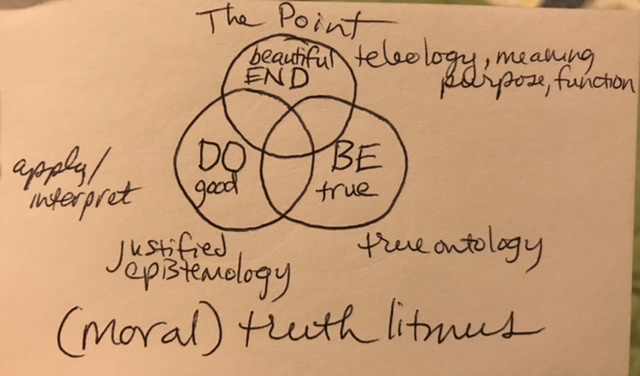 The Point
beautiful
END
teleology, meaning
purpose, function
DO
good
BE
true
apply/
interpret
justified
epistemology
true ontology
(moral) truth litmus